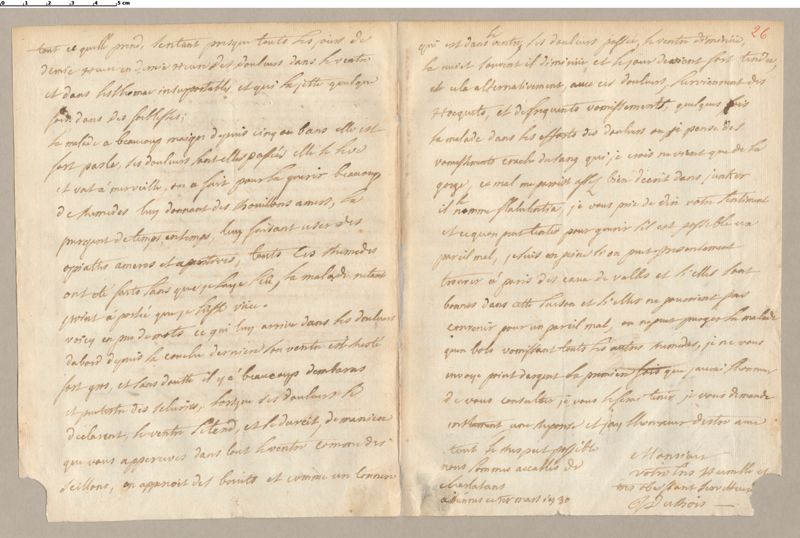 tout ce quelle prend, sentant presque touts les jours de
demie heure en demie heure des douleurs dans le ventre
et dans lesthomac insuportables et qui la jette quelque
fois dans des foiblesses;
la malade a beaucoup maigri depuis cinq ou 6 ans elle est
fort pasle, les douleurs sont elles passées elle se leve
et vat a merveille, on a fait pour la guerir beaucoup
de remedes luy donnant des bouillons amers, la
purgeant de temps en temps, luy faisant user des
opiattes ameres et aperitives, touts ces remedes
ont été faits sans que je laye sçu, la malade netant
point a portée que je lusse vüe.
voicy en peu de mots ce qui luy arrive dans les douleurs
dabord depuis le couche derniere son ventre est resté
fort gros, et sans doutte il y a beaucoup dembaras
et peutestre des schirres, lorsque ses douleurs se
declarent, le ventre setend, et se durcit, de maniere
que vous appercevez dans tout le ventre comme des
seillons, on apperçoit des bruits et comme un tonnerre
26
qui est dans le ventre, les douleurs passées, le ventre diminüe,
la nuict souvent il diminüe, et le jour devient fort tendu,
et cela alternativement, avec ces douleurs, surviennent des
hocquets, et de frequents vomissements, quelques fois
la malade dans les efforts des douleurs ou
vomissements crache du sang qui je crois ne vient que de la
gorge, ce mal me paroist assez bien decrit dans junker
il le nomme flatulentia, je vous prie de dire votre sentiment
et ce quon peut tenter pour guerir sil est possible un
pareil mal, je suis en peine si on peut presentement
trouver a paris des eaux de valles et si elles sont
bonnes dans cette saison et si elles ne pouroient pas
convenir pour un pareil mal, on ne peut purger la malade
quen bols vomissant touts les autres remedes, je ne vous
envoye point dargent la premiere fois que jaurai lhonneur
de vous consulter je vous le feray tenir, je vous demande
instamment une reponse et jay lhonneur destre avec
tout le respect possible
nous sommes accablés de
charlatans
a Vannes ce 1er mars 1730
Monsieur
votre tres humble et
tres obeissant serviteur
Dubois